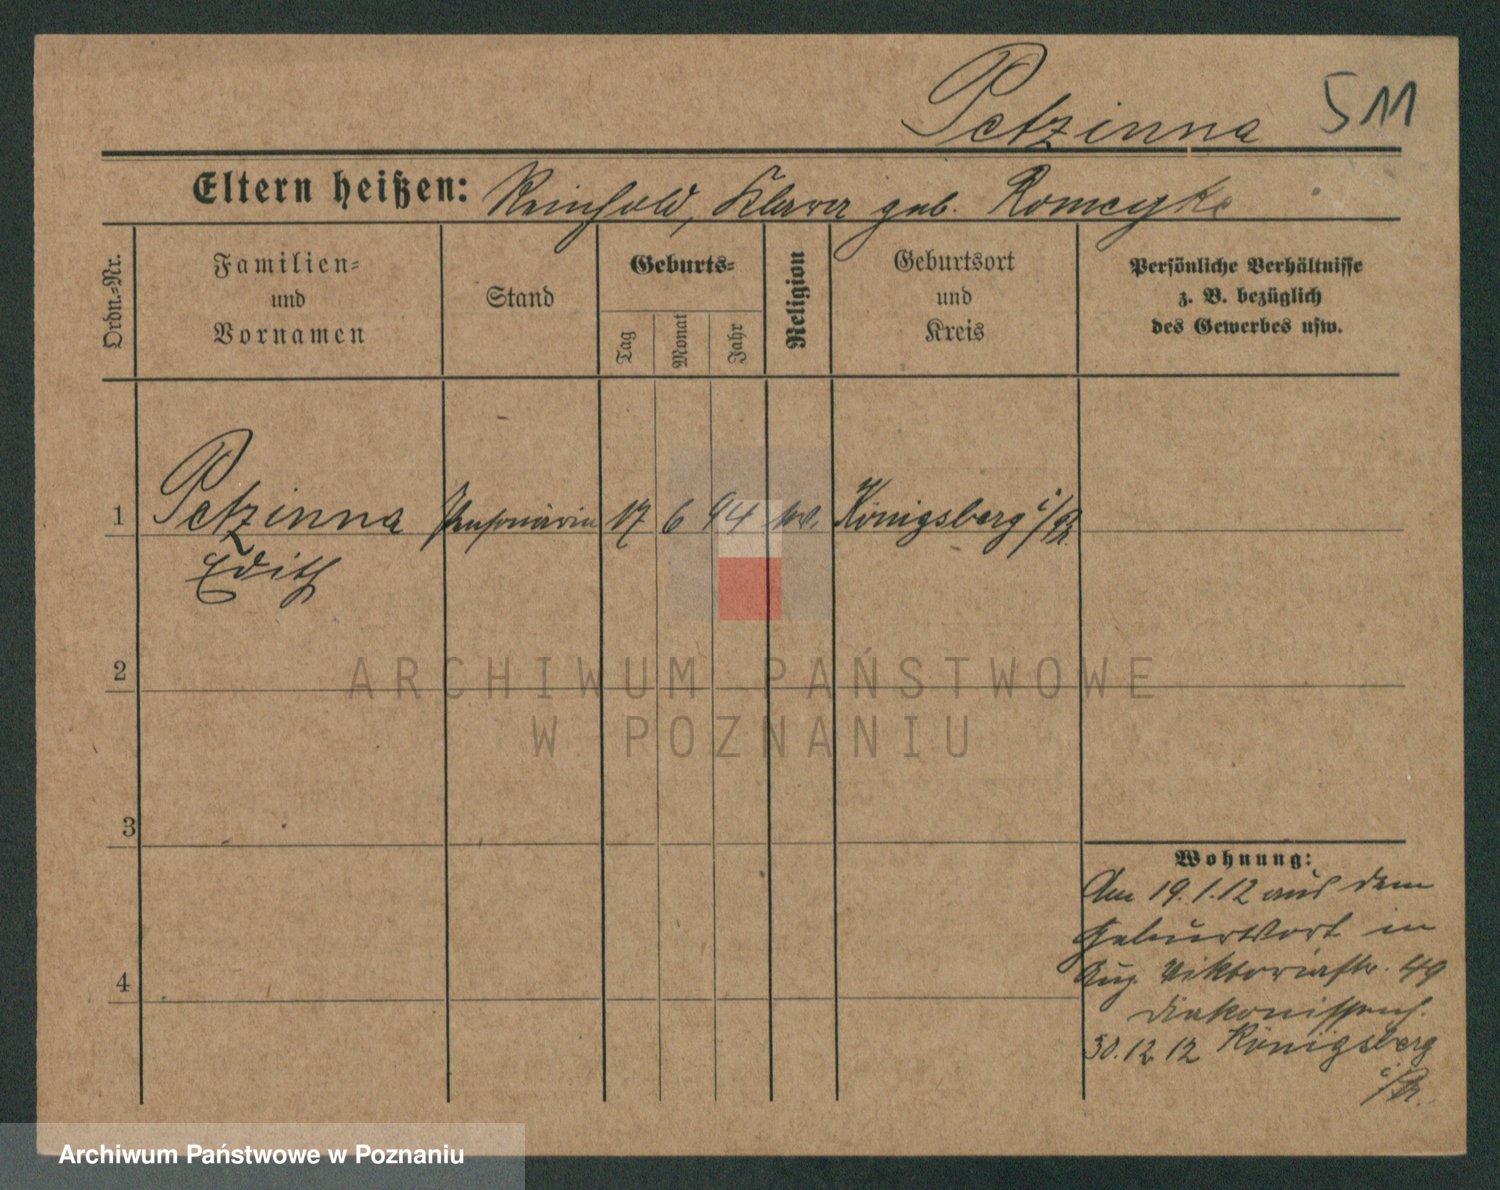 Petzinna 511
Eltern heißen: Reinhold, Klara geb. Romeyke
Ordn.-Nr.
Familien-
und
Vornamen
Stand
Geburts-
Tag
Monat
Jahr
Religion
Geburtsort
und
Kreis
Persönliche Verhältnisse
z. B. bezüglich
des Gewerbes usw.
1 Petzinna Pensionärin 17 6 94 ev. Königsberg i/Pr.
Edith
2
3
4
Wohnung:
Am 19.1.12 aus dem
Geburtsort in
Aug. Viktoriastr. 49
Diakonissenh.
30.12.12 Königsberg
i/Pr.
ARCHIWUM PAŃSTWOWE
W POZNANIU
Archiwum Państwowe w Poznaniu